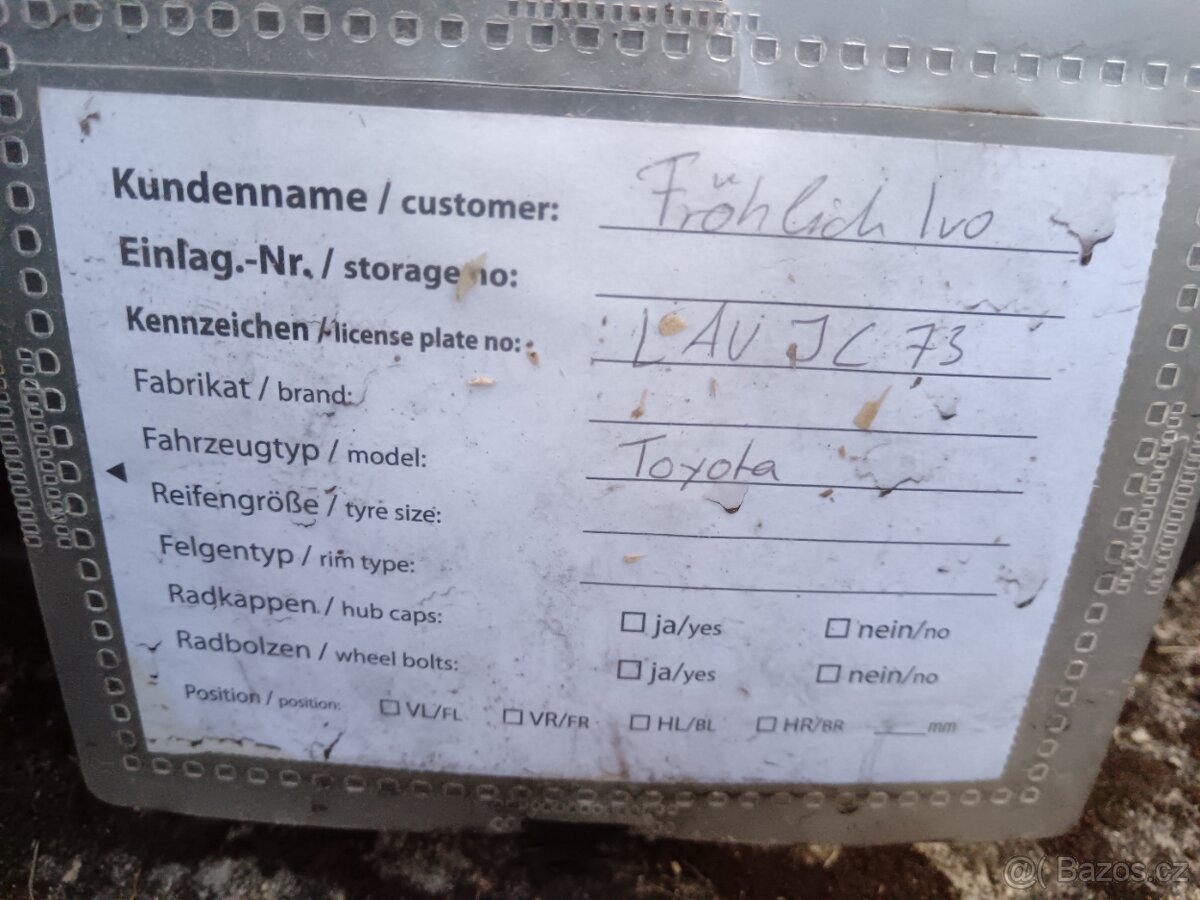 Kundenname / customer: Fröhlich Ivo
Einlag.-Nr. / storage no:
Kennzeichen / license plate no: LAU JC 73
Fabrikat / brand:
Fahrzeugtyp / model: Toyota
Reifengröße / tyre size:
Felgentyp / rim type:
Radkappen / hub caps: ☐ ja/yes ☐ nein/no
Radbolzen / wheel bolts: ☐ ja/yes ☐ nein/no
Position / position: ☐ VL/FL ☐ VR/FR ☐ HL/BL ☐ HR/BR ____mm
Bazos.cz